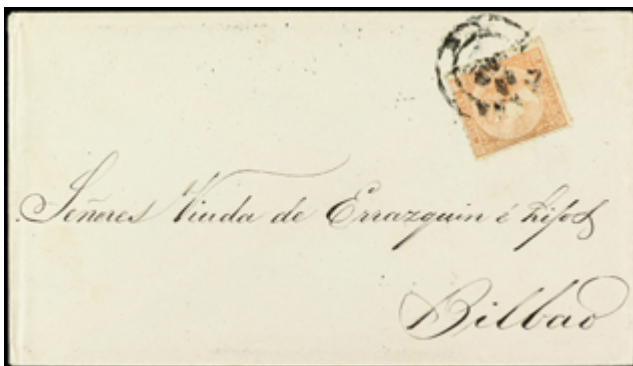 Señores Viuda de Errazquin é hijos
Bilbao